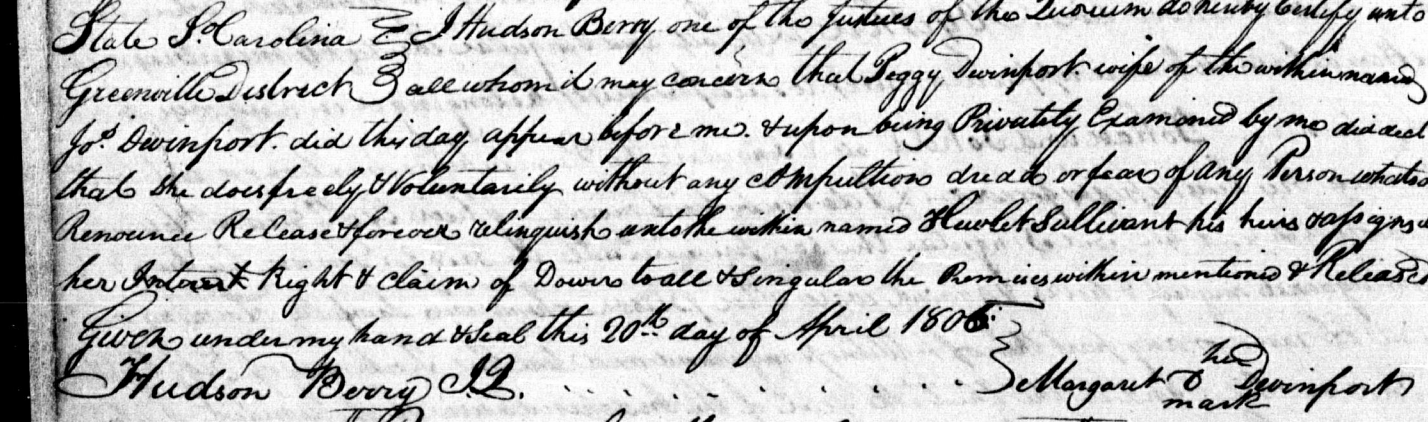 State So Carolina } I Hudson Berry one of the Justices of the Quorum do hereby Certify unto
Greenville District } all whom it may concern that Peggy Devinport wife of the within named
Jos. Devinport did this day appear before me & upon being Privately Examined by me did decl
that she does freely & Voluntarily without any compultion dread or fear of any Person whatso
Renounce Release & forever relinquish unto the within named Hewlet Sullivant his heirs & assigns
her Interest Right & claim of Dower to all & Singular the Premises within mentioned & Released
Given under my hand & Seal this 20th day of April 1806
Hudson Berry J.Q. . . . . . . . . . Margaret her Devinport
mark